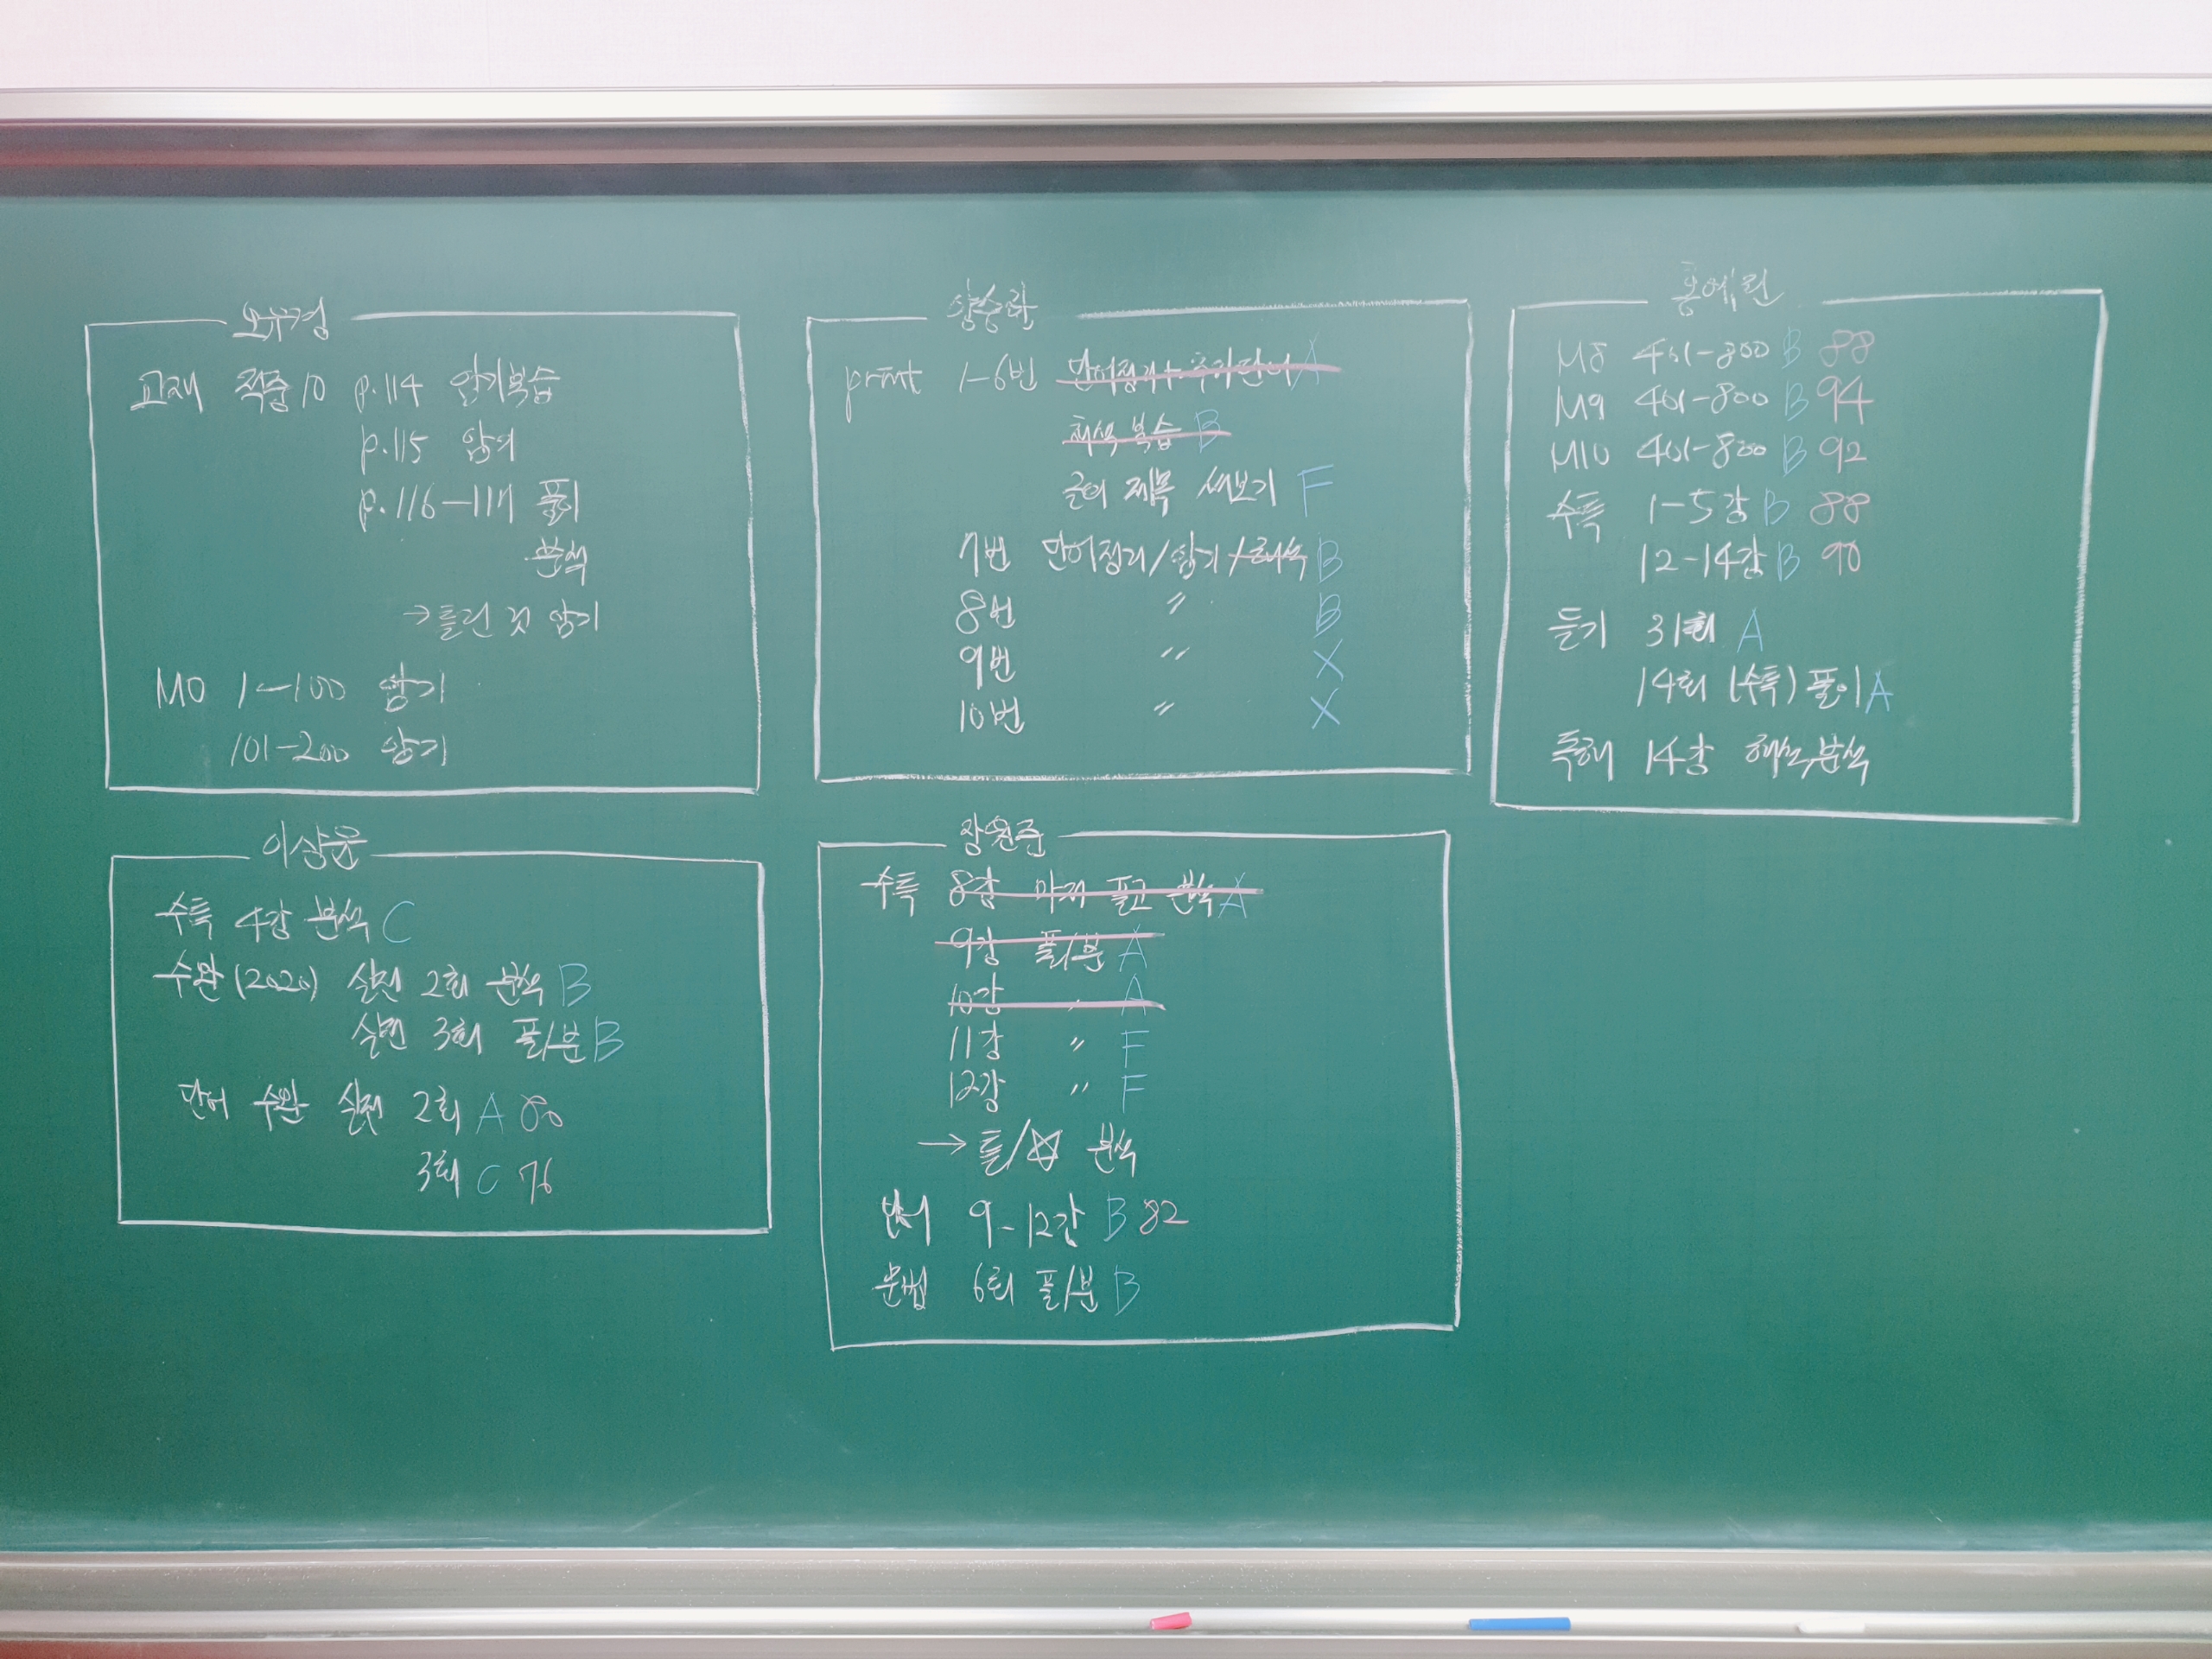 오유경
교재 적중 10 p.114 암기복습
p.115 암기
p.116-117 풀이
분석
→틀린 것 암기
M0 1-100 암기
101-200 암기
양승관
print 1-6번 단어정리+추가단어 A
해석 복습 B
글의 제목 써보기 F
7번 단어정리/암기/해석 B
8번 〃 B
9번 〃 X
10번 〃 X
홍예린
M8 401-800 B 88
M9 401-800 B 94
M10 401-800 B 92
수특 1-5강 B 88
12-14강 B 90
듣기 31회 A
14회 (수특) 풀이 A
독해 14강 해석,분석
이상윤
수특 4강 분석 C
수완(2020) 실전 2회 분석 B
실전 3회 풀/분 B
단어 수완 실전 2회 A 80
3회 C 76
장원준
수특 8강 마저 풀고 분석 A
9강 풀/분 A
10강 〃 A
11강 〃 F
12강 〃 F
→ 틀/☆ 분석
단어 9-12강 B 82
문법 6회 풀/분 B